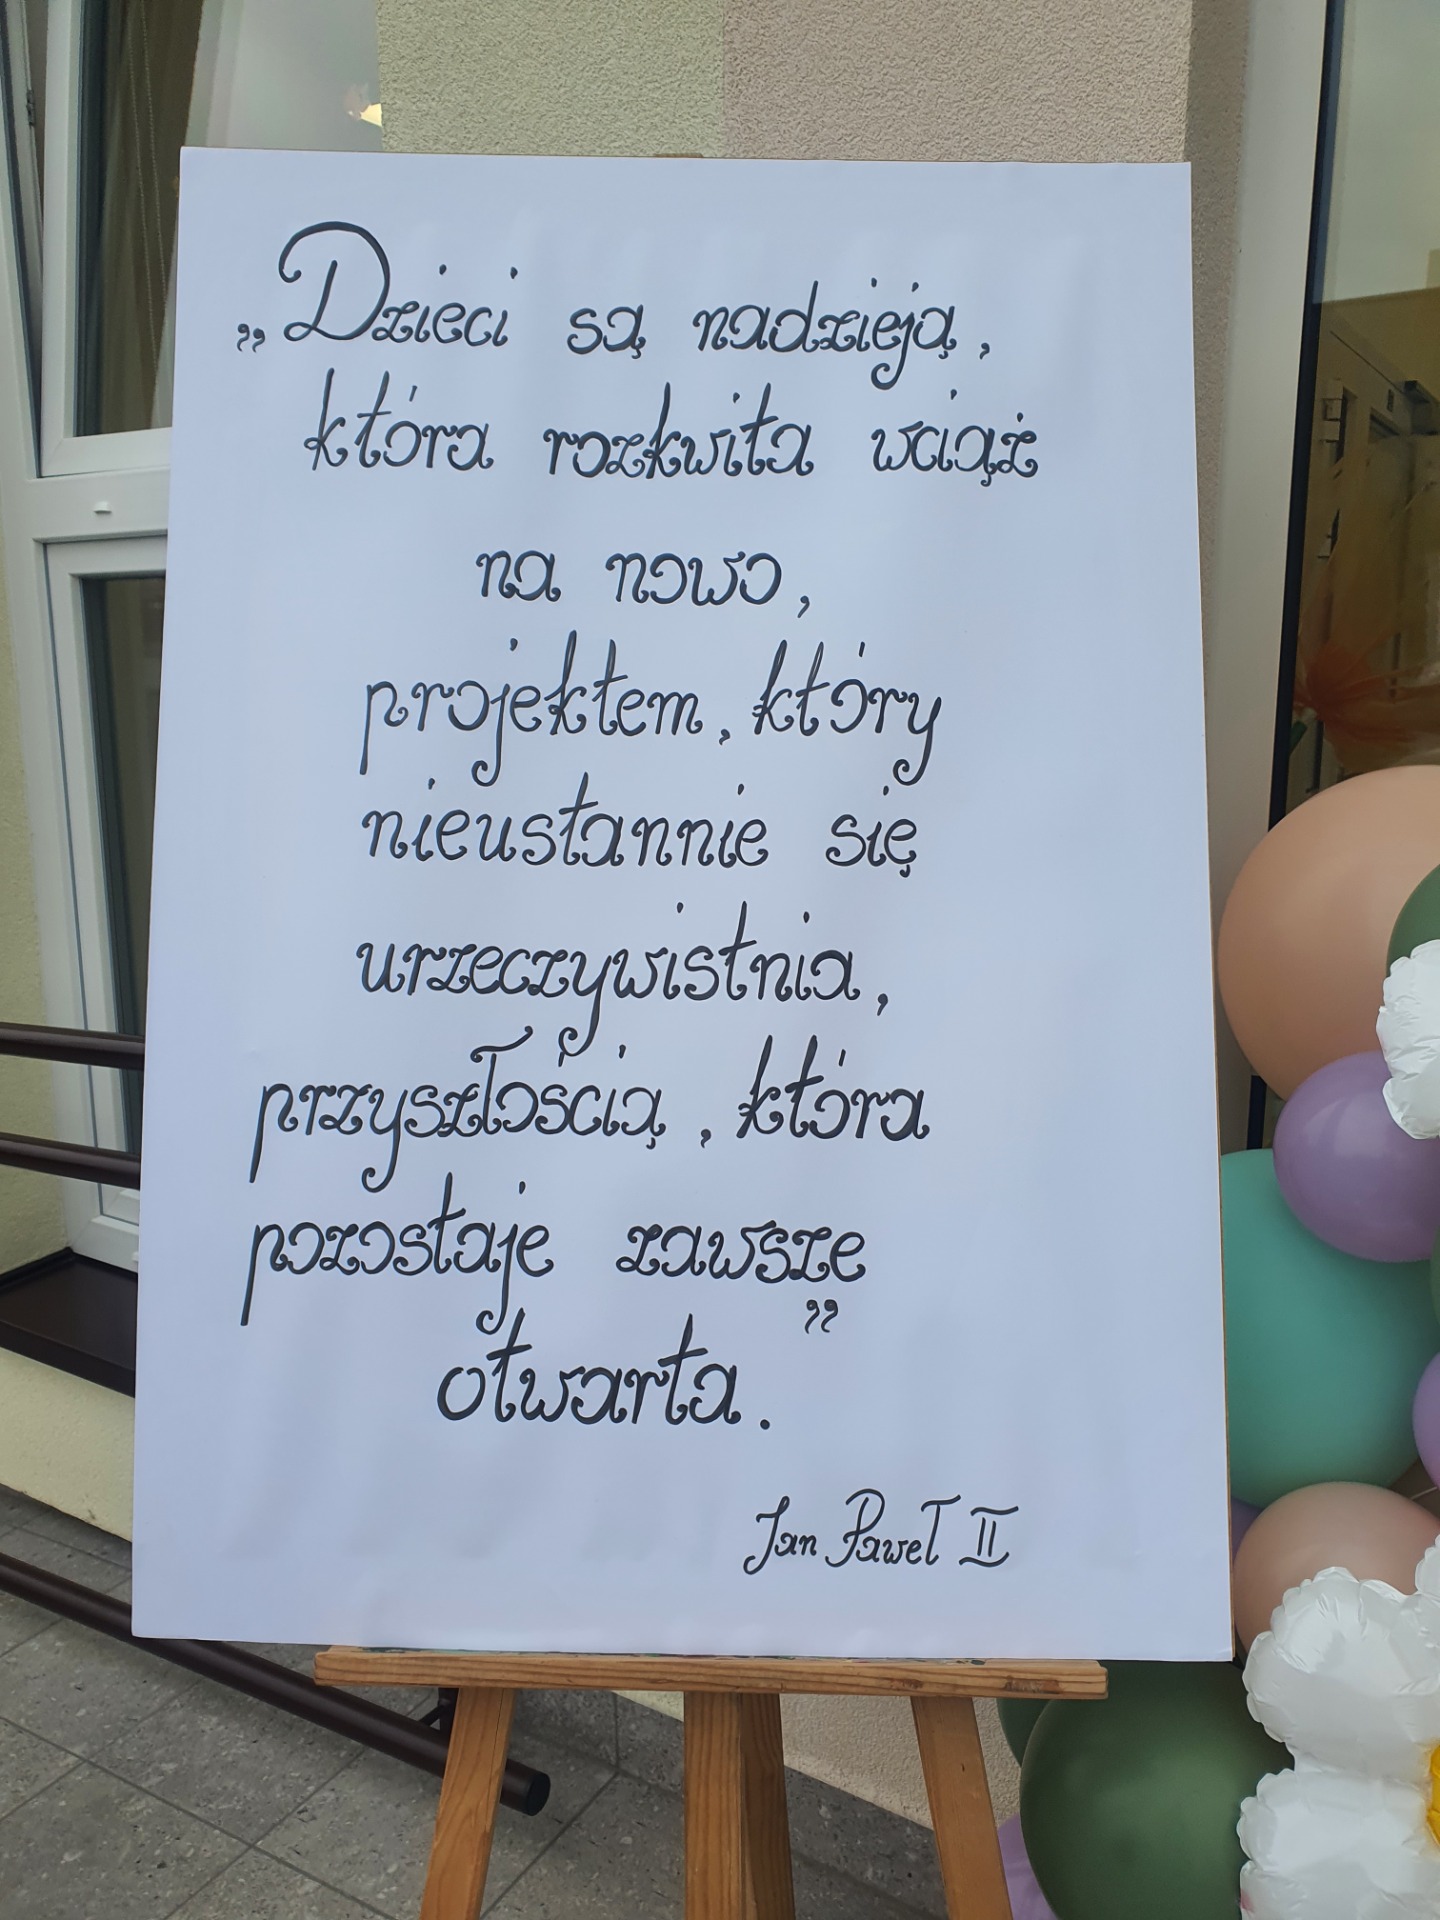 „Dzieci są nadzieją,
która rozkwita wciąż
na nowo,
projektem, który
nieustannie się
urzeczywistnia,
przyszłością, która
pozostaje zawsze
otwarta.”
Jan Paweł II